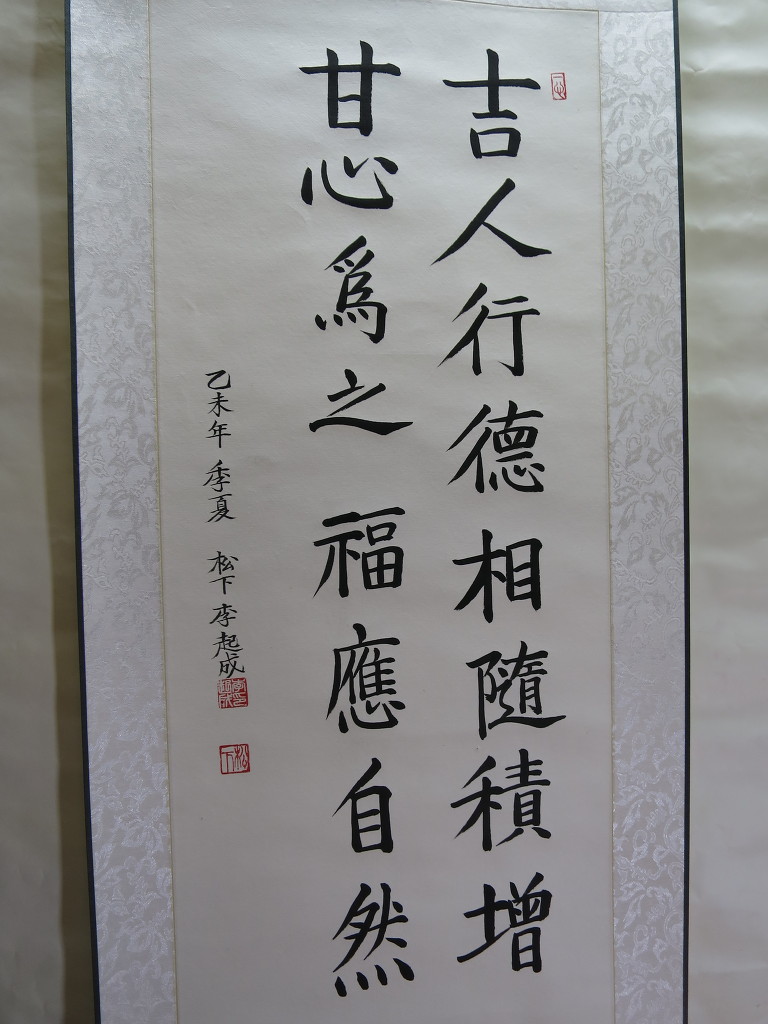 吉人行德相隨積增
甘心爲之福應自然
乙未年季夏 松下李起成
松下